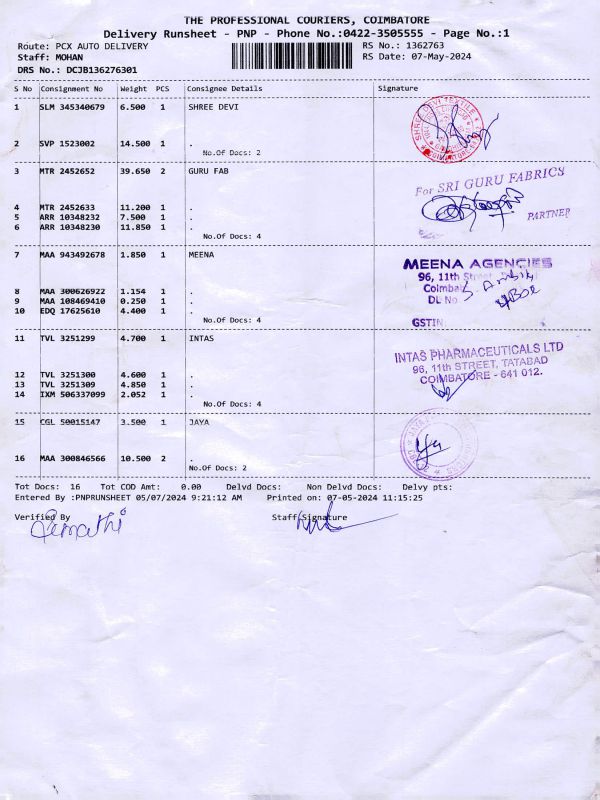 THE PROFESSIONAL COURIERS, COIMBATORE
Delivery Runsheet - PNP - Phone No.:0422-3505555 - Page No.:1
Route: PCX AUTO DELIVERY RS No.: 1362763
Staff: MOHAN RS Date: 07-May-2024
DRS No.: DCJB136276301
S No Consignment No Weight PCS Consignee Details Signature
1 SLM 345340679 6.500 1 SHREE DEVI
SHREE DEVI TEXTILE
2 SVP 1523002 14.500 1 .
No.Of Docs: 2
3 MTR 2452652 39.650 2 GURU FAB
For SRI GURU FABRICS
PARTNER
4 MTR 2452633 11.200 1 .
5 ARR 10348232 7.500 1 .
6 ARR 10348230 11.850 1 .
No.Of Docs: 4
7 MAA 943492678 1.850 1 MEENA
MEENA AGENCIES
96, 11th Street
Coimba
DL No
GSTIN
8 MAA 300626922 1.154 1 .
9 MAA 108469410 0.250 1 .
10 EDQ 17625610 4.400 1 .
No.Of Docs: 4
11 TVL 3251299 4.700 1 INTAS
INTAS PHARMACEUTICALS LTD
96, 11th STREET, TATABAD
COIMBATORE - 641 012.
12 TVL 3251300 4.600 1 .
13 TVL 3251309 4.850 1 .
14 IXM 506337099 2.052 1 .
No.Of Docs: 4
15 CGL 50015147 3.500 1 JAYA
16 MAA 300846566 10.500 2 .
No.Of Docs: 2
Tot Docs: 16 Tot COD Amt: 0.00 Delvd Docs: Non Delvd Docs: Delvy pts:
Entered By :PNPRUNSHEET 05/07/2024 9:21:12 AM Printed on: 07-05-2024 11:15:25
Verified By Staff Signature